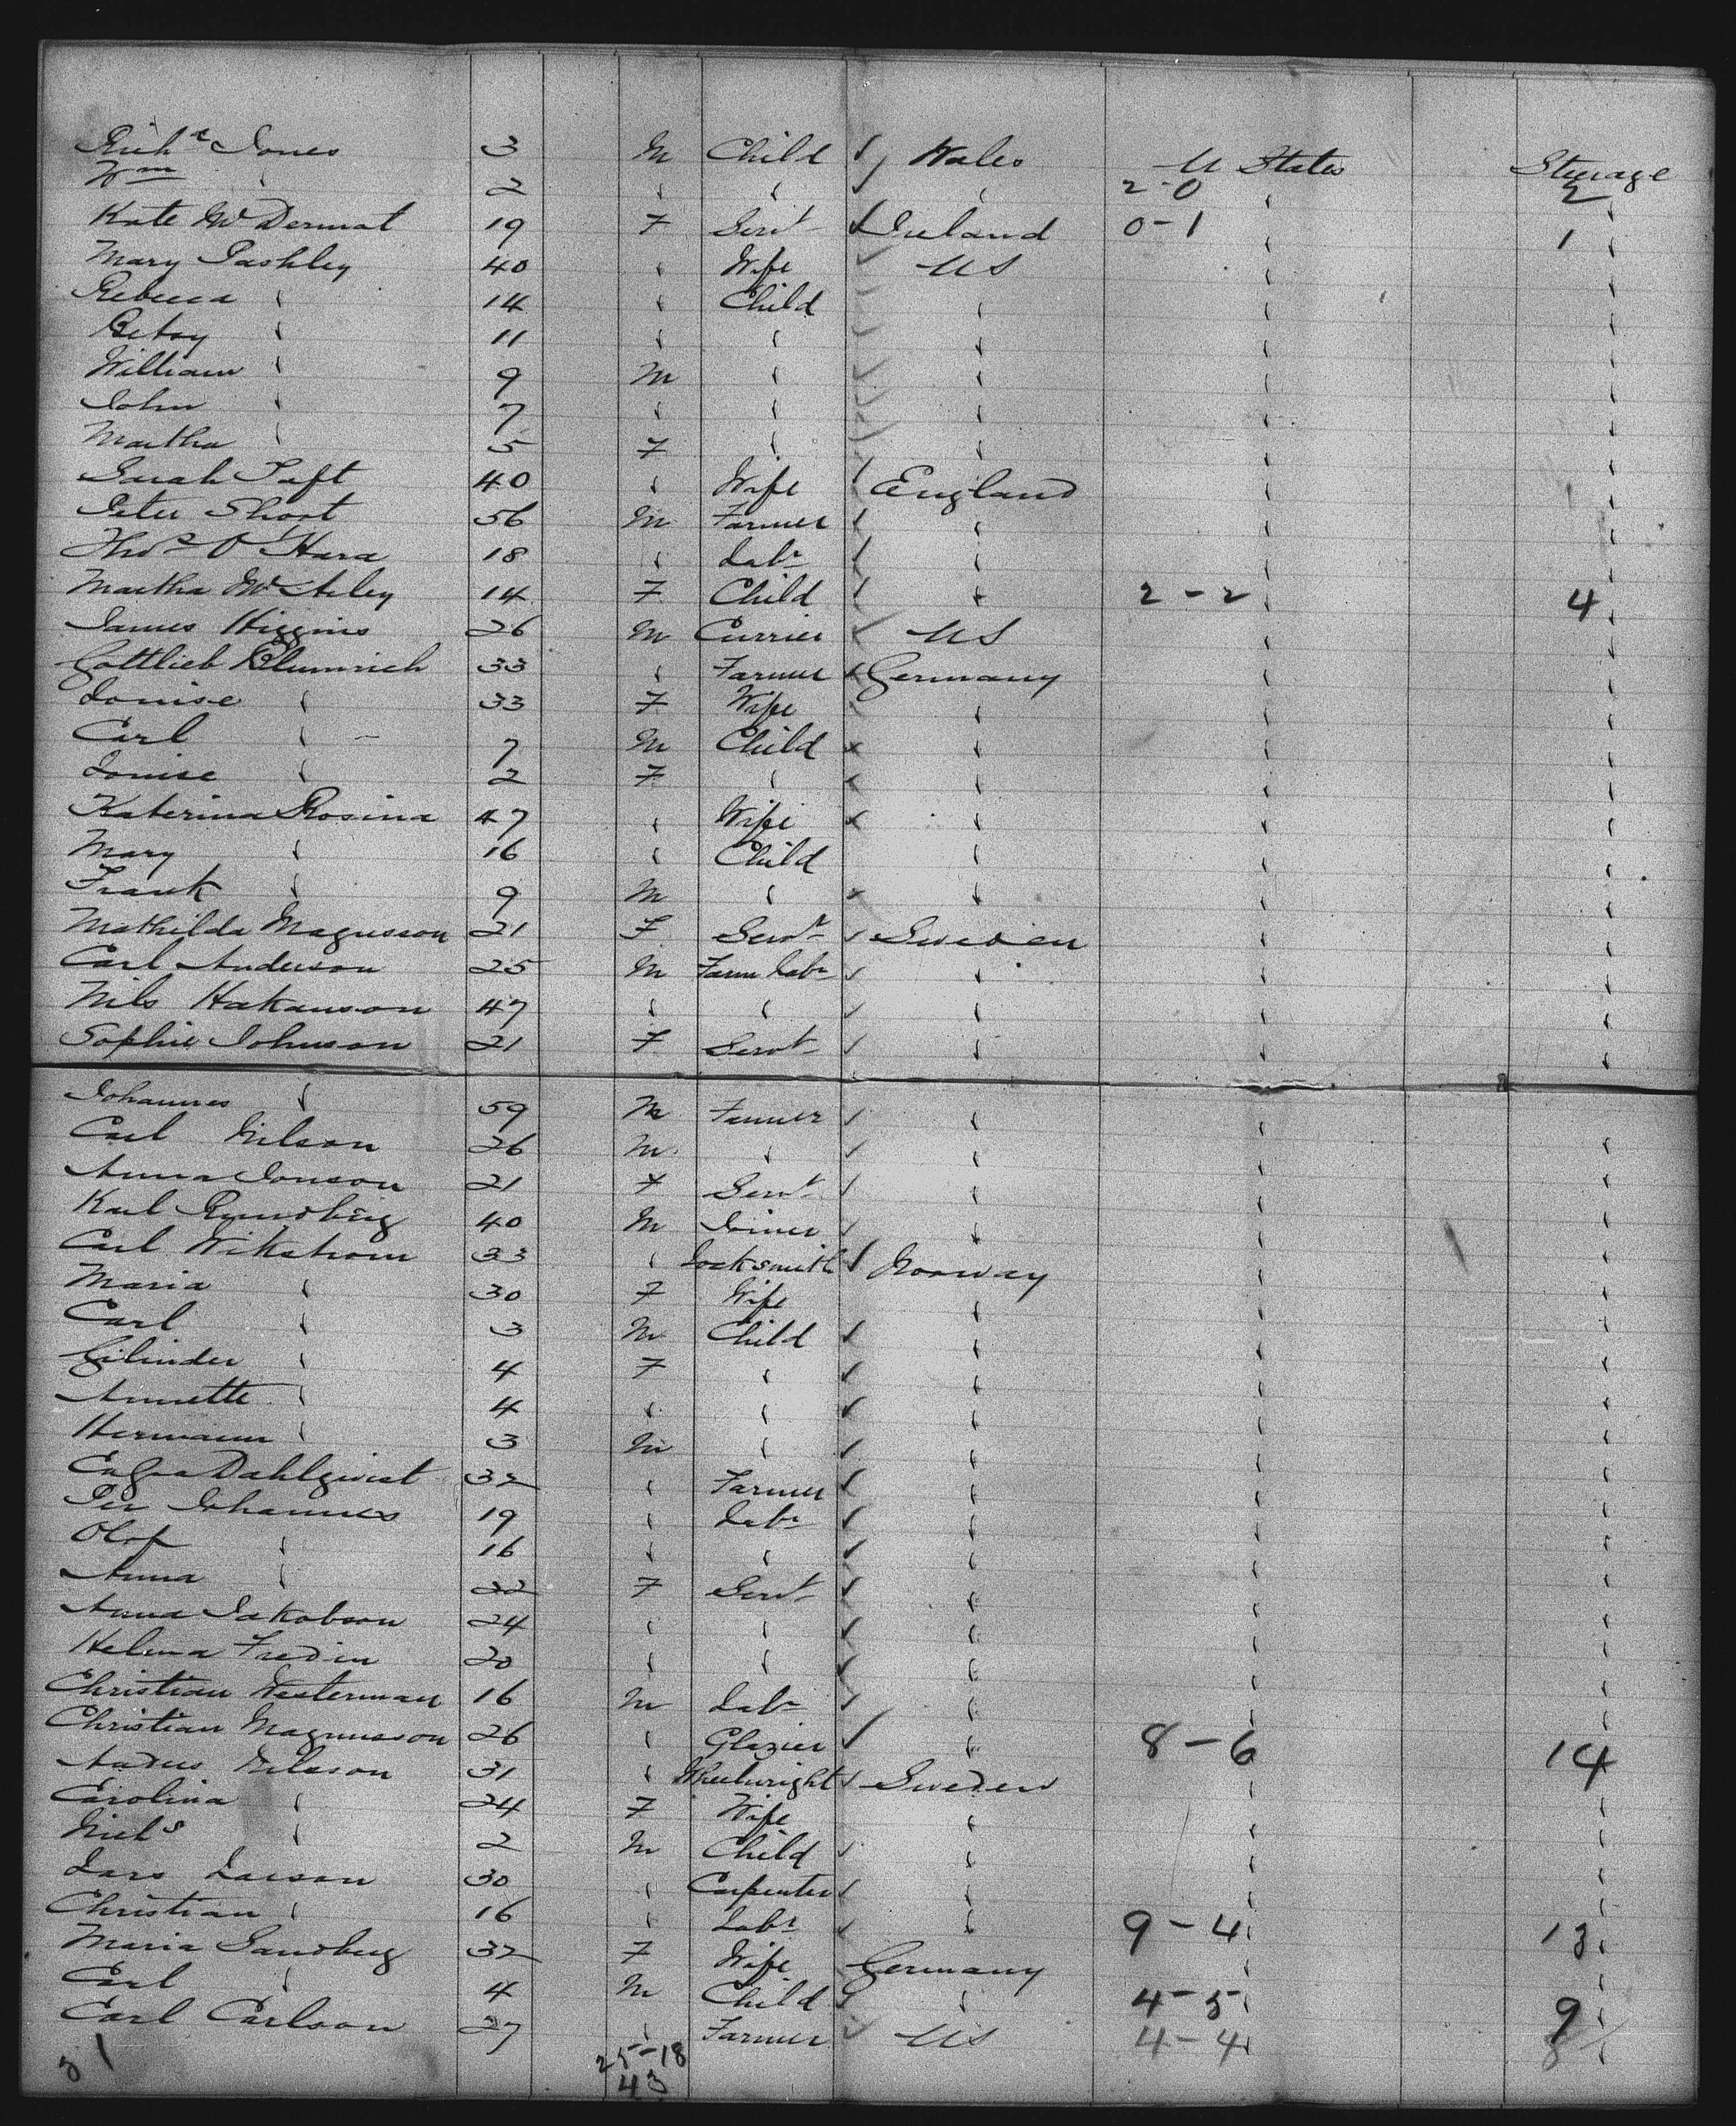 Rich^d Jones 3 M Child Wales U States Steerage
W^m " 2 " " " 2-0 " 2 "
Kate McDermot 19 F Servt Ireland 0-1 " 1 "
Mary Pashley 40 " Wife US " "
Rebecca " 14 " Child " " "
Betsy " 11 " " " " "
William " 9 M " " " "
John " 7 " " " " "
Martha " 5 F " " " "
Sarah Taft 40 " Wife England " "
Peter Short 56 M Farmer " " "
Thos O'Hara 18 " Labr " " "
Martha 14 F Child " 2-2 " 4 "
James Higgins 26 M Currier US " "
Gottlieb Blumrich 33 " Farmer Germany " "
Louise " 33 F Wife " " "
Carl " 7 M Child " " "
Louise " 2 F " " " "
Katerina Rosina 47 " Wife " " "
Mary " 16 " Child " " "
Frank " 9 M " " " "
Mathilda Magnusson 21 F Servt Sweden " "
Carl Anderson 25 M Farm Labr " " "
Nils Hakanson 47 " " " " "
Sophie Johnson 21 F Servt " " "
Johannes " 59 M Farmer " " "
Carl Nilson 26 M " " " "
Anna Jonson 21 F Servt " " "
Karl 40 M Joiner " " "
Carl Wikstrom 33 " Locksmith Norway " "
Maria " 30 F Wife " " "
Carl " 3 M Child " " "
Gilinder " 4 F " " " "
Annette " 4 " " " " "
Hermann " 3 M " " " "
Dahlqvist 32 " Farmer " " "
Per Johannes 19 " Labr " " "
Olof " 16 " " " " "
Anna " 22 F Servt " " "
Anna Jakobson 24 " " " " "
Helena Fredin 20 " " " " "
Christian Westerman 16 M Labr " " "
Christian Magnusson 26 " Glazier " 8-6 14
Nilsson 31 " Wheelwright Sweden " "
Carolina " 24 F Wife " " "
Niels " 2 M Child " " "
Lars Larson 30 " Carpenter " " "
Christian " 16 " Labr " 9-4 " 13 "
Maria Sandberg 32 F Wife Germany " "
Carl " 4 M Child " 4-5 " 9 "
Carl Carlson 27 " Farmer US 4-4 " 8 "
25-18
43